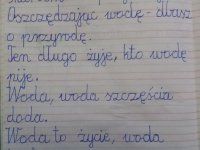 Oszczędzając wodę - dbasz
o przyrodę.
Ten długo żyje, kto wodę
pije.
Woda, woda szczęścia
doda.
Woda to życie, woda